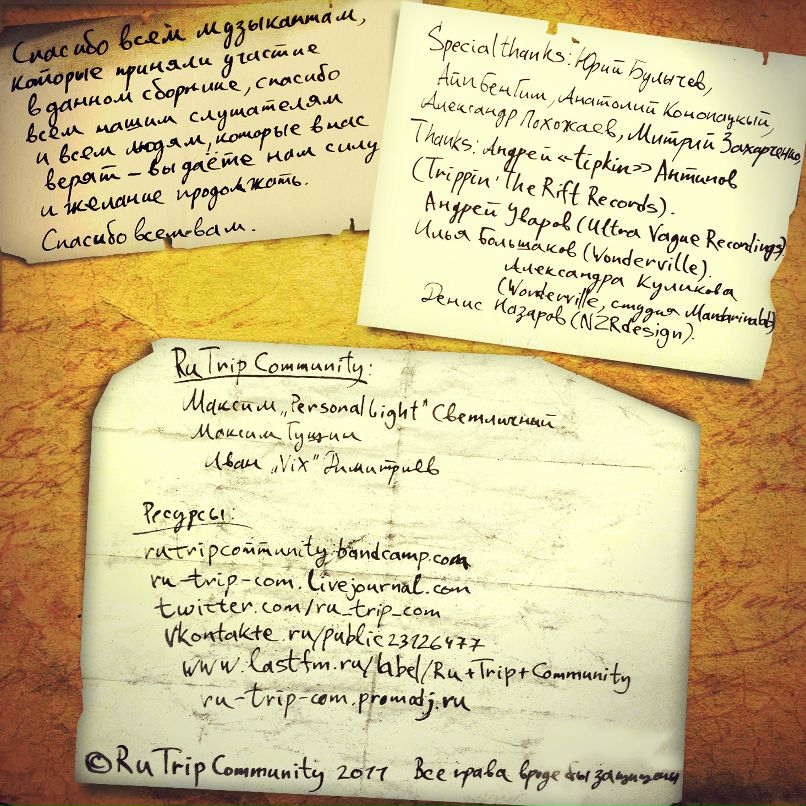 Спасибо всем музыкантам,
которые приняли участие
в данном сборнике, спасибо
всем нашим слушателям
и всем людям, которые в нас
верят – вы даёте нам силу
и желание продолжать.
Спасибо всем вам.
Special thanks: Юрий Булычев,
Айпи Бен Гим, Анатолий Конопацкий,
Александр Похожаев, Митрий Захарченко
Thanks: Андрей «tipkin» Антипов
(Trippin' The Rift Records).
Андрей Уваров (Ultra Vague Recordings)
Илья Большаков (Wonderville).
Александра Куликова
(Wonderville, студия Mandarinlab)
Денис Назаров (NZRdesign).
Ru Trip Community:
Максим „Personal Light" Светличный
Максим Гущин
Иван „Vix" Димитриев
Ресурсы:
rutripcommunity.bandcamp.com
ru-trip-com.livejournal.com
twitter.com/ru_trip_com
vkontakte.ru/public23126477
www.lastfm.ru/label/Ru+Trip+Community
ru-trip-com.promodj.ru
©Ru Trip Community 2011 Все права вроде бы защищены